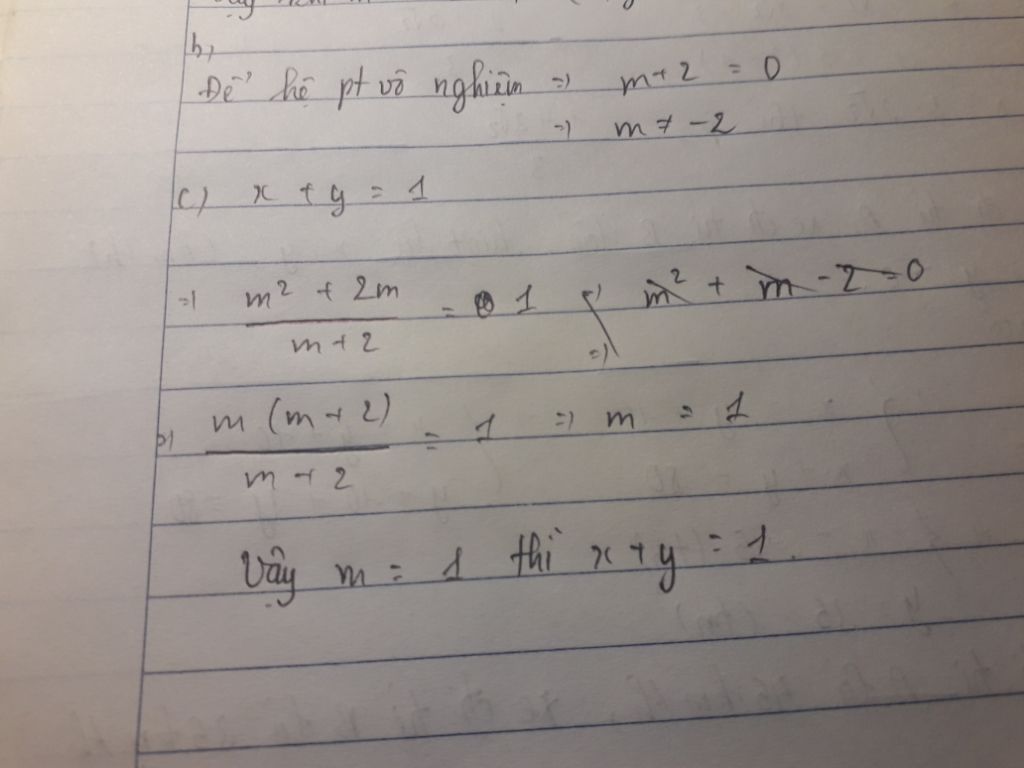 b,
Để hệ pt vô nghiệm => m+2 = 0
=> m ≠ -2
c) x + y = 1
=> (m² + 2m)/(m + 2) = 1 m² + m - 2 = 0
=>
=> (m (m + 2))/(m + 2) = 1 => m = 1
Vậy m = 1 thì x + y = 1.